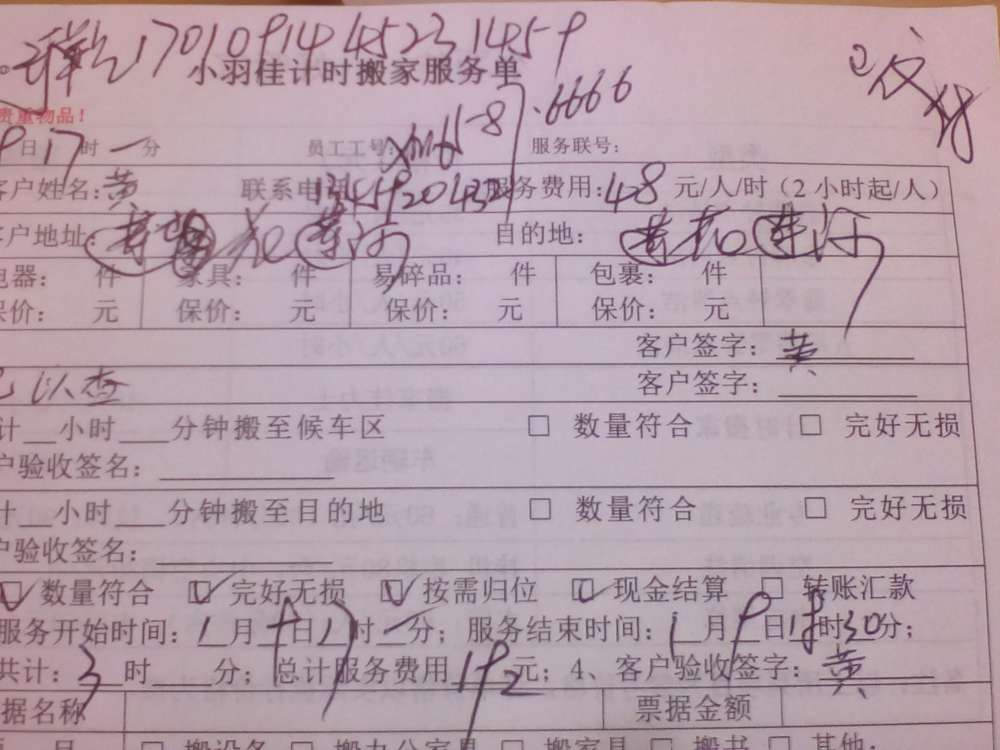 1701091445231459
小羽佳计时搬家服务单
贵重物品!
9日17时一分 员工工号: 服务联号:
客户姓名:黄 联系电 服务费用:48元/人/时(2小时起/人)
客户地址: 目的地:
电器: 件 家具: 件 易碎品: 件 包裹: 件
保价: 元 保价: 元 保价: 元 保价: 元
客户签字:黄
已检查 客户签字:
计__小时__分钟搬至候车区 □ 数量符合 □ 完好无损
户验收签名:
计__小时__分钟搬至目的地 □ 数量符合 □ 完好无损
户验收签名:
☑数量符合 ☑完好无损 ☑按需归位 ☑现金结算 □ 转账汇款
服务开始时间:1月9日17时一分;服务结束时间:1月9日18时30分;
共计:3时 分;总计服务费用192元;4、客户验收签字:黄
据名称 票据金额
□ 搬设备 □ 搬办公家具 □ 搬家具 □ 搬书 □ 其他: